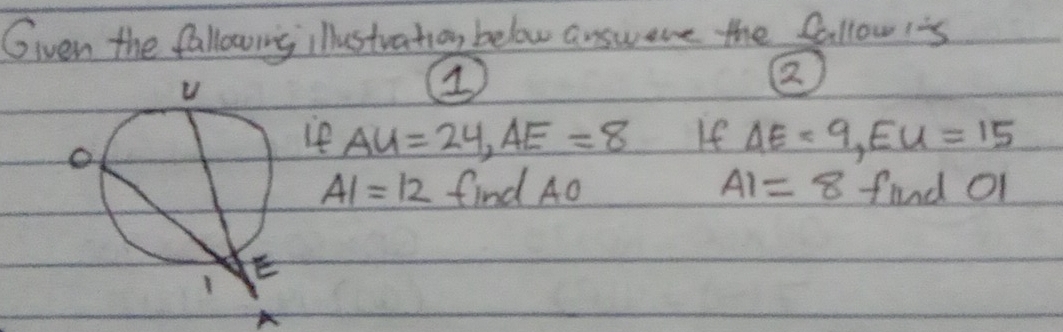 Given the fallowing illustration below answere the fallowing
① ②
U
if AU = 24, AE = 8 If AE = 9, EU = 15
O
AI = 12 find AO AI = 8 find OI
E
I
A